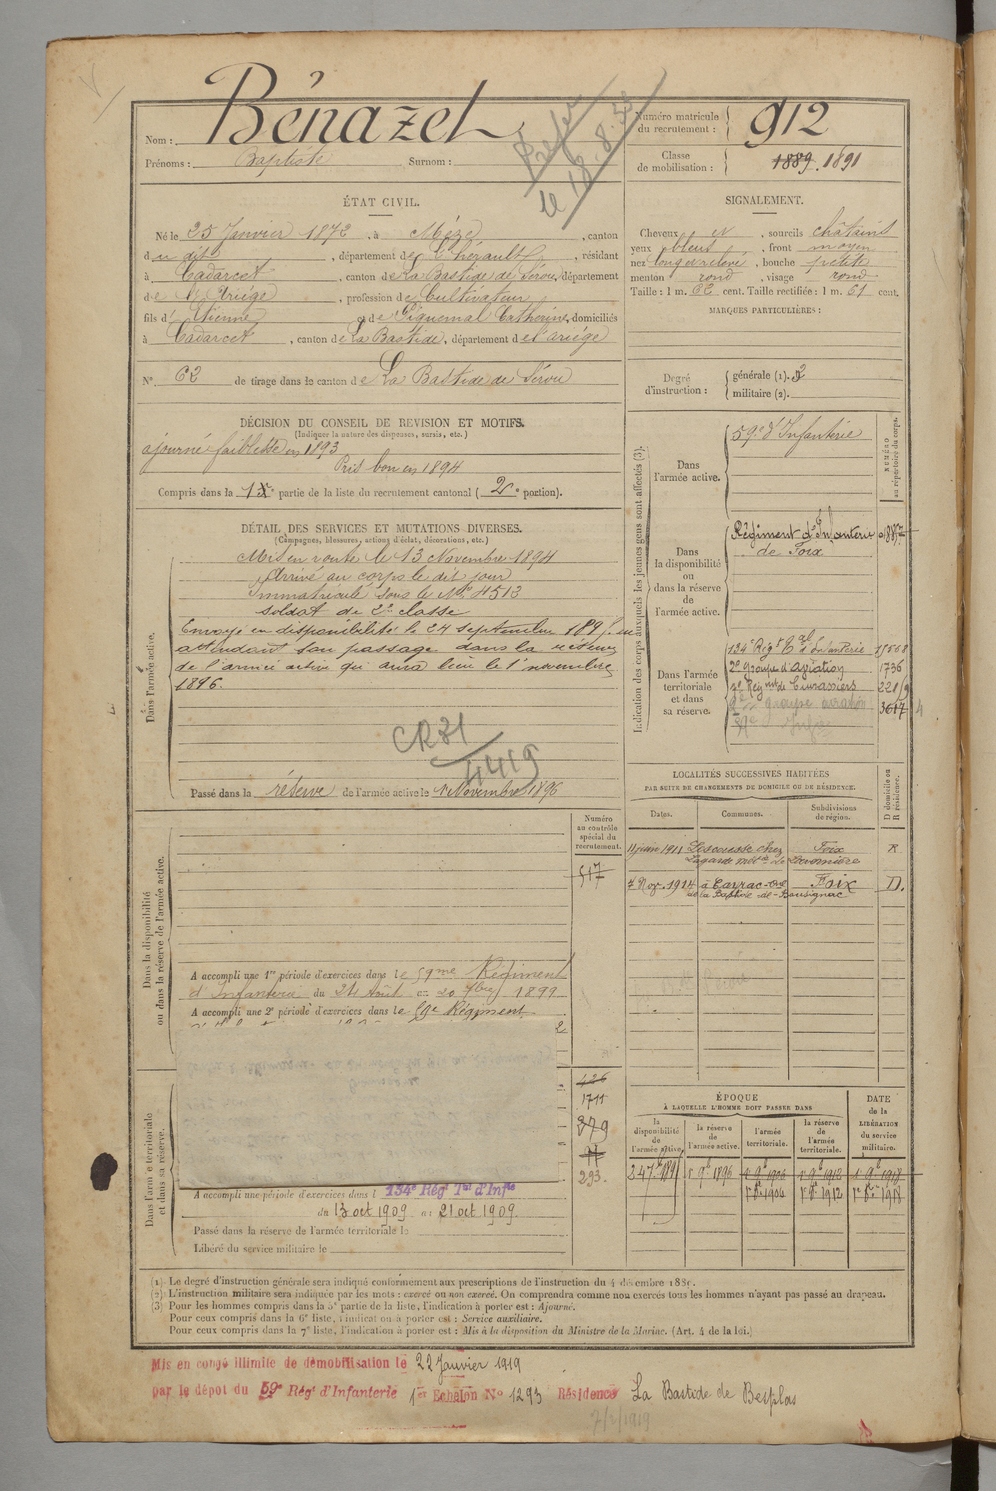 Nom : Bénazet
Prénoms : Baptiste Surnom :
Préfre
le 18.8.32
Numéro matricule du recrutement : 912
Classe de mobilisation : 1889. 1891
ÉTAT CIVIL.
Né le 25 Janvier 1872, à Mèze, canton
du dit, département de l'hérault, résidant
à Cadarcet, canton de La Bastide de Sérou, département
de l'Ariège, profession de Cultivateur
fils d'Etienne et de Piquemal Catherine, domiciliés
à Cadarcet, canton de La Bastide, département de l'ariège
N° 62 de tirage dans le canton de La Bastide de Sérou
SIGNALEMENT.
Cheveux N, sourcils châtains
yeux bleus, front moyen
nez long et relevé, bouche petite
menton rond, visage rond
Taille : 1 m. 62 cent. Taille rectifiée : 1 m. 61 cent.
MARQUES PARTICULIÈRES :
Degré d'instruction : générale (1). 2
militaire (2).
DÉCISION DU CONSEIL DE REVISION ET MOTIFS.
(Indiquer la nature des dispenses, sursis, etc.)
ajourné faiblesse en 1893
Pris bon en 1894
Compris dans la 1re partie de la liste du recrutement cantonal (2e portion).
DÉTAIL DES SERVICES ET MUTATIONS DIVERSES.
(Campagnes, blessures, actions d'éclat, décorations, etc.)
Dans l'armée active.
Mis en route le 13 Novembre 1894
Arrivé au corps le dit jour
Immatriculé sous le N° 4513
soldat de 2e classe
Envoyé en disponibilité le 24 septembre 1895 en
attendant son passage dans la réserve
de l'armée active qui aura lieu le 1er novembre
1896.
CR31
4419
Passé dans la réserve de l'armée active le 1er Novembre 1896
Indication des corps auxquels les jeunes gens sont affectés (3).
NUMÉRO au répertoire du corps.
Dans l'armée active.
59e d'Infanterie
Dans la disponibilité ou dans la réserve de l'armée active.
Régiment d'Infanterie
de Foix
Dans l'armée territoriale et dans sa réserve.
134e Régt Tal d'Infanterie
2e groupe d'aviation 1736
Régmt de Cuirassiers
groupe aviation 3617
LOCALITÉS SUCCESSIVES HABITÉES
PAR SUITE DE CHANGEMENTS DE DOMICILE OU DE RÉSIDENCE.
Dates. Communes. Subdivisions de région. D domicile ou R résidence.
11 juin 1911 Lescousse chez Foix R
7 Nov. 1914 à Carrac- Foix D.
de la Bastide-de-Bousignac
Dans la disponibilité ou dans la réserve de l'armée active.
Numéro au contrôle spécial du recrutement.
517
A accompli une 1re période d'exercices dans le 59me Régiment
d'Infanterie du 24 Août au 20 7bre 1899
A accompli une 2e période d'exercices dans le 59e Régiment
Dans l'armée territoriale et dans sa réserve.
426
1711
379
293.
A accompli une période d'exercices dans l 134e Régt Tal d'Infie
du 13 oct 1909 au 21 oct 1909.
Passé dans la réserve de l'armée territoriale le
Libéré du service militaire le
ÉPOQUE
À LAQUELLE L'HOMME DOIT PASSER DANS
DATE de la LIBÉRATION du service militaire.
la disponibilité de l'armée active. la réserve de l'armée active. l'armée territoriale. la réserve de l'armée territoriale.
24 7bre 1895 1er 9bre 1896 1er 9bre 1906 1er 9bre 1912 1er 9bre 1918
1er 8bre 1904 1er 8bre 1912 1er 8bre 1918
(1) Le degré d'instruction générale sera indiqué conformément aux prescriptions de l'instruction du 4 décembre 1889.
(2) L'instruction militaire sera indiquée par les mots : exercé ou non exercé. On comprendra comme non exercés tous les hommes n'ayant pas passé au drapeau.
(3) Pour les hommes compris dans la 5e partie de la liste, l'indication à porter est : Ajourné.
Pour ceux compris dans la 6e liste, l'indication à porter est : Service auxiliaire.
Pour ceux compris dans la 7e liste, l'indication à porter est : Mis à la disposition du Ministre de la Marine. (Art. 4 de la loi.)
Mis en congé illimité de démobilisation le 22 Janvier 1919
par le dépôt du 59e Régt d'Infanterie 1er Echelon N° 1293 Résidence La Bastide de Besplas